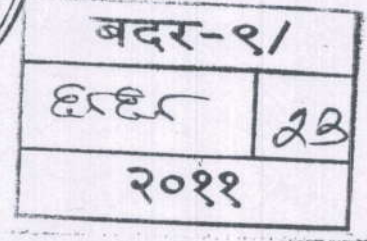 बदर-९/
६८६८ २३
२०११